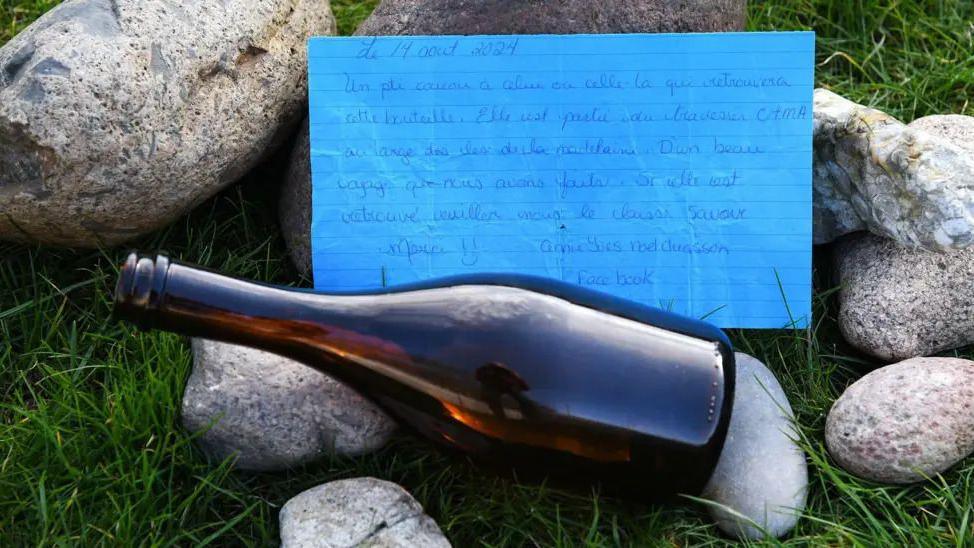 Le 14 aout 2024
Un pti coucou à celui ou celle-la qui retrouvera
cette bouteille. Elle est partie du traversier CTMA
au large des iles de la madelaine. D'un beau
voyage que nous avons faits. Si elle est
retrouvé veuiller nous le laisser savoir
Merci !!
Facebook